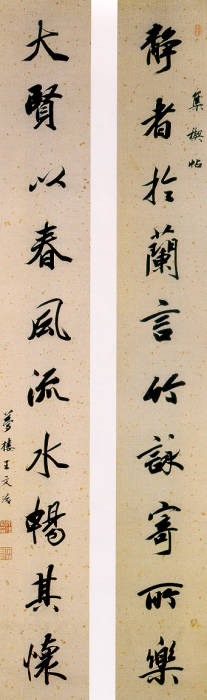 集禊帖
靜者於蘭言竹詠寄所樂
大賢以春風流水暢其懷
夢樓王文治